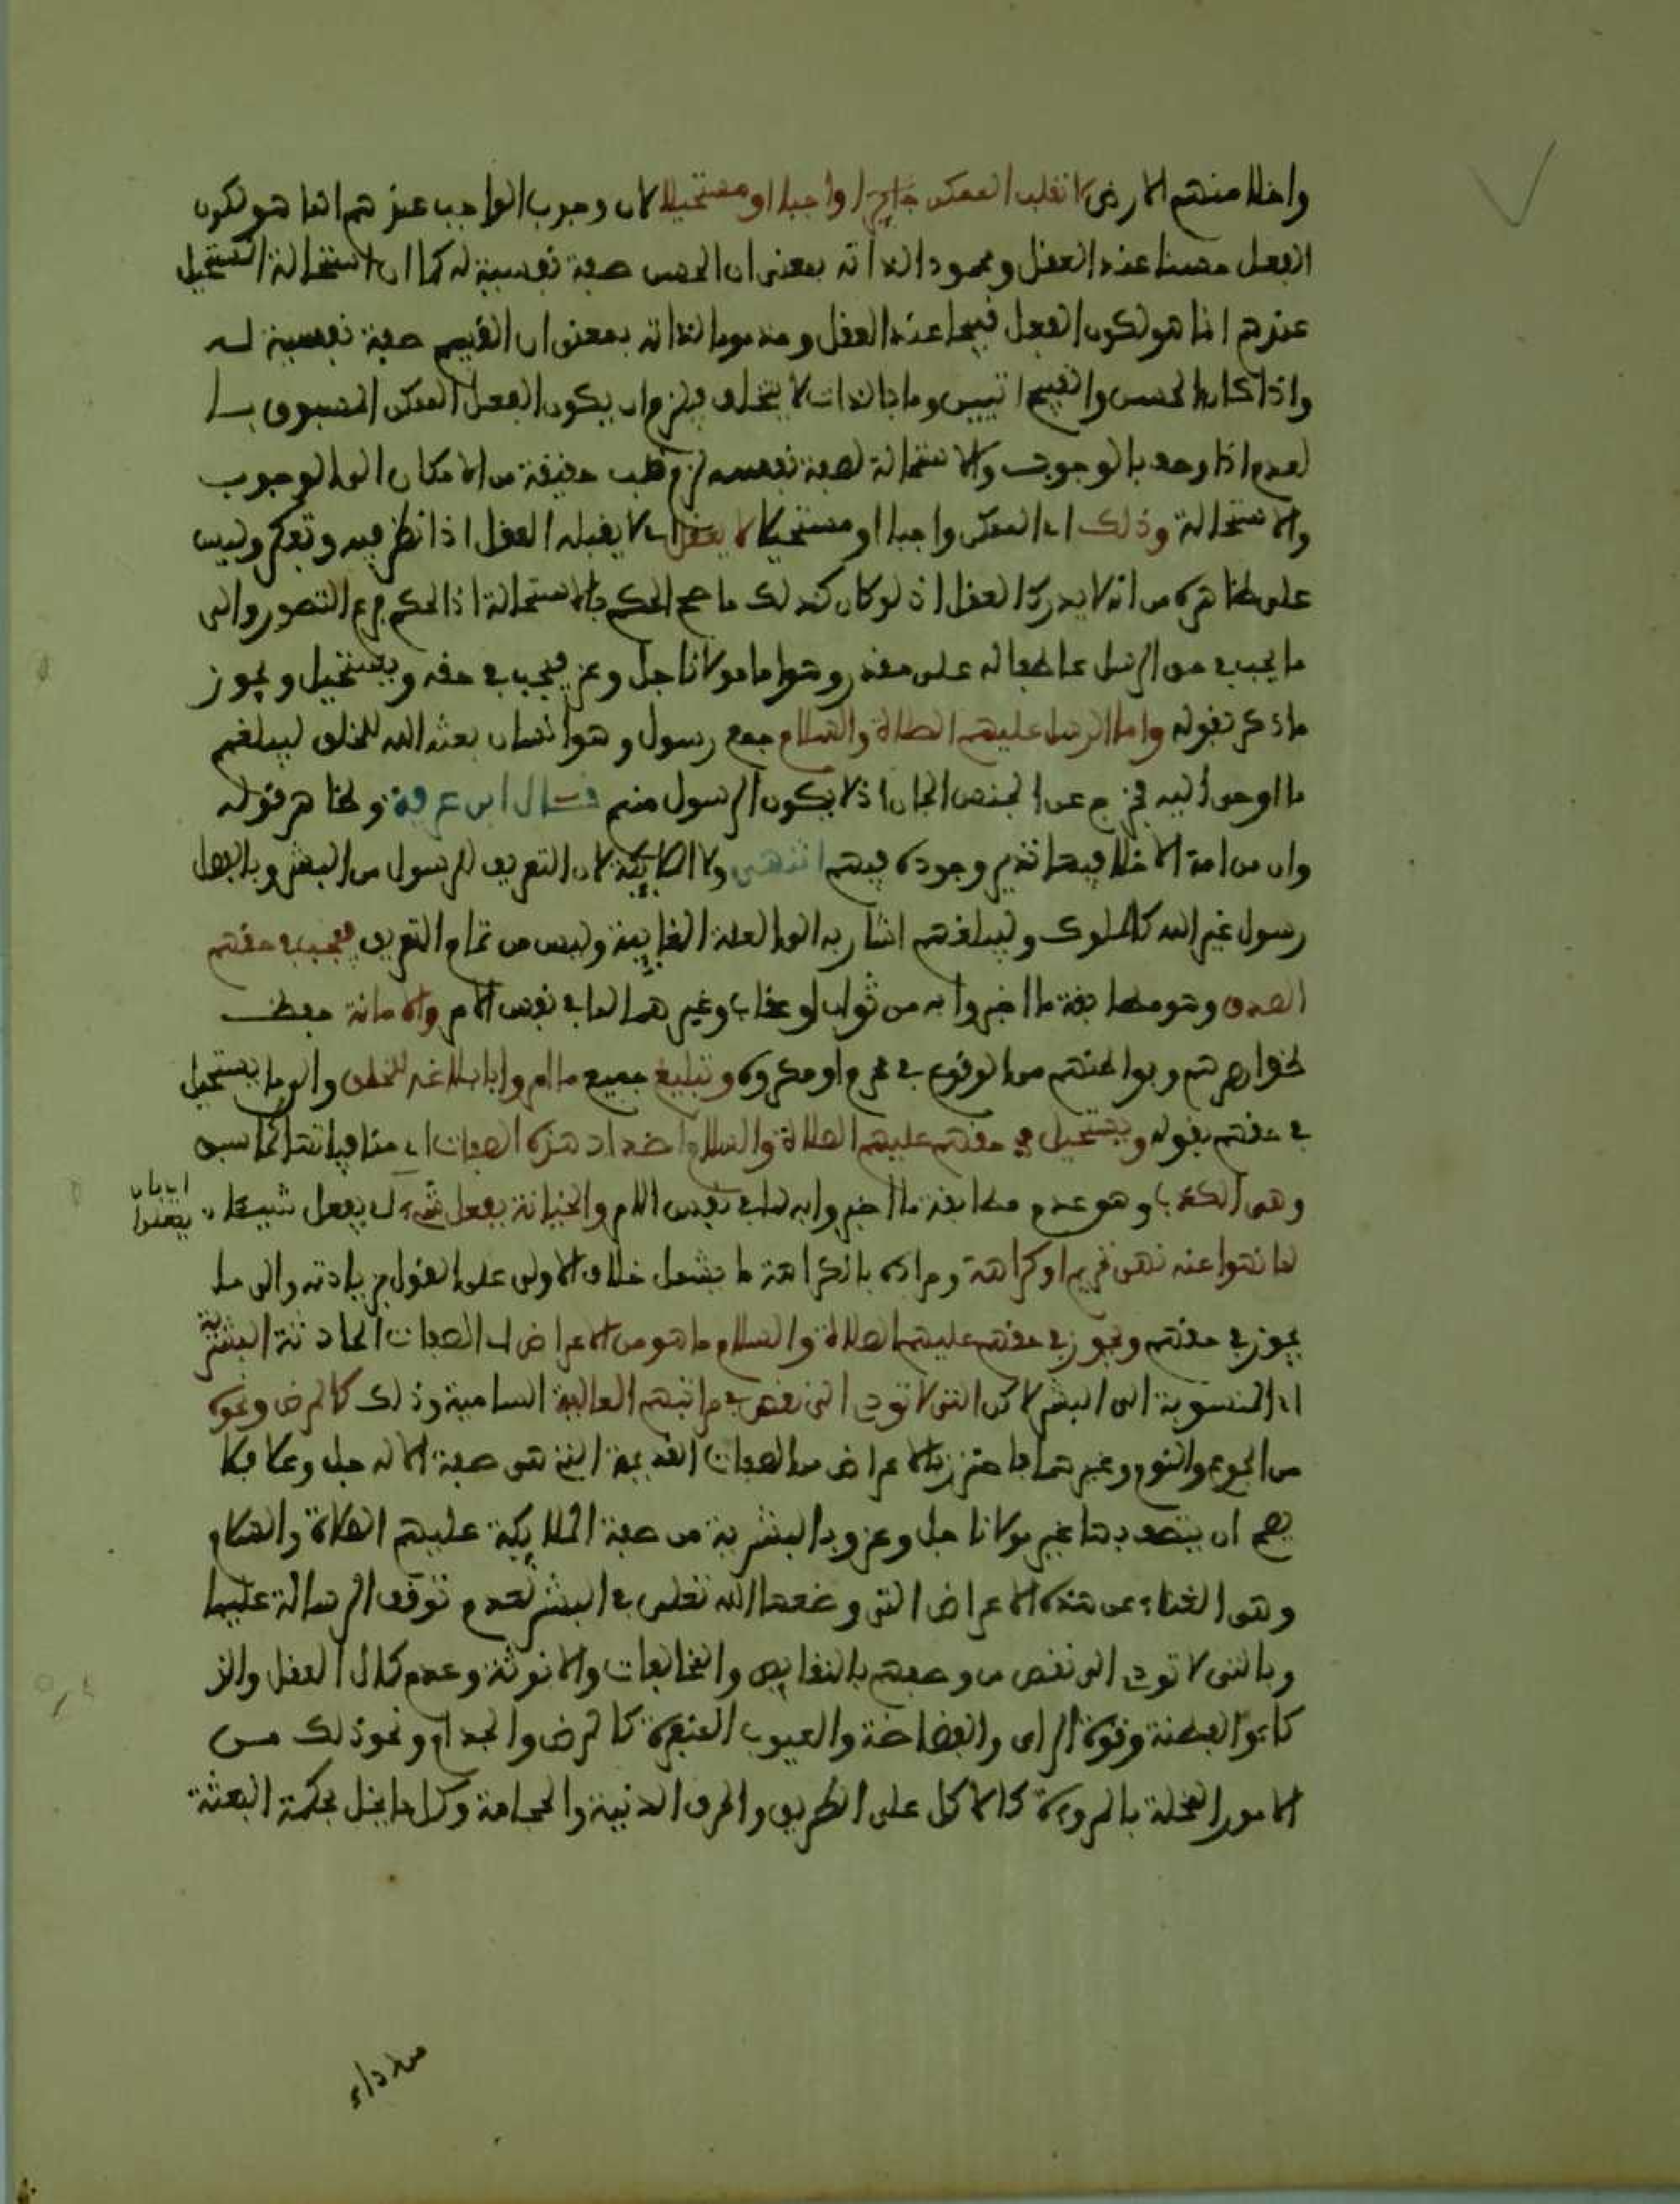 واخلا منهم الارض لانقلب الممكن جايزا واجبا او مستحيلا لان وجوب الواجب عندهم انما هو لكون
الفعل حسنا عند العقل ومحمودا لذاته بمعنى ان الحسن صفة نفسية له كما ان استحالة المستحيل
عندهم انما هو لكون الفعل قبيحا عند العقل ومذموما لذاته بمعنى ان القبيح صفة نفسية له
واذا كان الحسن والقبيح اتيين وما بالذات لا يتخلف فيلزم ان يكون الفعل الممكن المسبوق با
لعدم اذا وصف بالوجوب والاستحالة لصفة نفسه لزم قلب حقيقة من الامكان الى الوجوب
والاستحالة وذلك اي الممكن واجبا او مستحيلا لا يعقل اي لا يقبله العقل اذا نظر فيه وتفكر وليس
على ظاهره من انه لا يدركه العقل اذ لو كان كذلك ما صح الحكم بالاستحالة اذ الحكم فرع التصور والى
ما يجب في حق الرسل عاطفا له على مقدر وهو اما مولانا جل وعز فيجب في حقه ويستحيل ويجوز
ما ذكر بقوله واما الرسل عليهم الصلاة والسلام جمع رسول وهو انسان بعثه الله للخلق ليبلغهم
ما اوحى اليه فخرج عن الجنس الجان اذ لا يكون الرسول منهم قال ابن عرفة وظاهر قوله
وان من امة الا خلا فيها نذير وجوده فيهم انتهى ولا الملايكة لان التعريف للرسول من البشر وبالفصل
رسول غير الله كالملوك وليبلغهم اشار به الى العلة الغايية وليس من تمام التعريف فيجب في حقهم
الصدق وهو مطابقة ما اخبروا به من ثواب او عقاب وغيرهما لما في نفس الامر والامانة حفظ
ظواهرهم وبواطنهم من الوقوع في محرم او مكروه وتبليغ جميع ما امروا بابلاغه للخلق والى ما يستحيل
في حقهم بقوله ويستحيل في حقهم عليهم الصلاة والسلام اضداد هذه الصفات اي منافياتها لما سبق
وهي الكذب وهو عدم مطابقة ما اخبروا به لما في نفس الامر والخيانة بفعل شيء اي بفعل شيئا
اي بان يفعلوا
مما نهوا عنه نهي تحريم او كراهة ومراده بالكراهة ما يشمل خلاف الاولى على القول بزيادته والى ما
يجوز في حقهم ويجوز في حقهم عليهم الصلاة والسلام ما هو من الاعراض اي الصفات الحادثة البشرية
اي المنسوبة الى البشر لاكن التي لا تودي الى نقص في مراتبهم العالية السامية وذلك كالمرض ونحوه
من الجوع والنوم وغيرهما فاحترز بالاعراض من الصفات القديمة التي هي صفة الاله جل وعلا فلا
يصح ان يتصف بها غير مولانا جل وعز وبالبشرية من صفة الملايكة عليهم الصلاة والسلام
وهي الغناء عن هذه الاعراض التي وضعها الله تعلى في البشر لعدم توقف الرسالة عليها
وبالتي لا تودي الى نقص من وصفهم بالنقايص والمخالفات والانوثة وعدم كمال العقل والذ
كاء والفطنة وقوة الراي والفضاضة والعيوب المنفرة كالبرص والجذام ونحو ذلك من
الامور المخلة بالمروءة كالاكل على الطريق والحرف الدنية والحجامة وكل ما يخل بحكمة البعثة